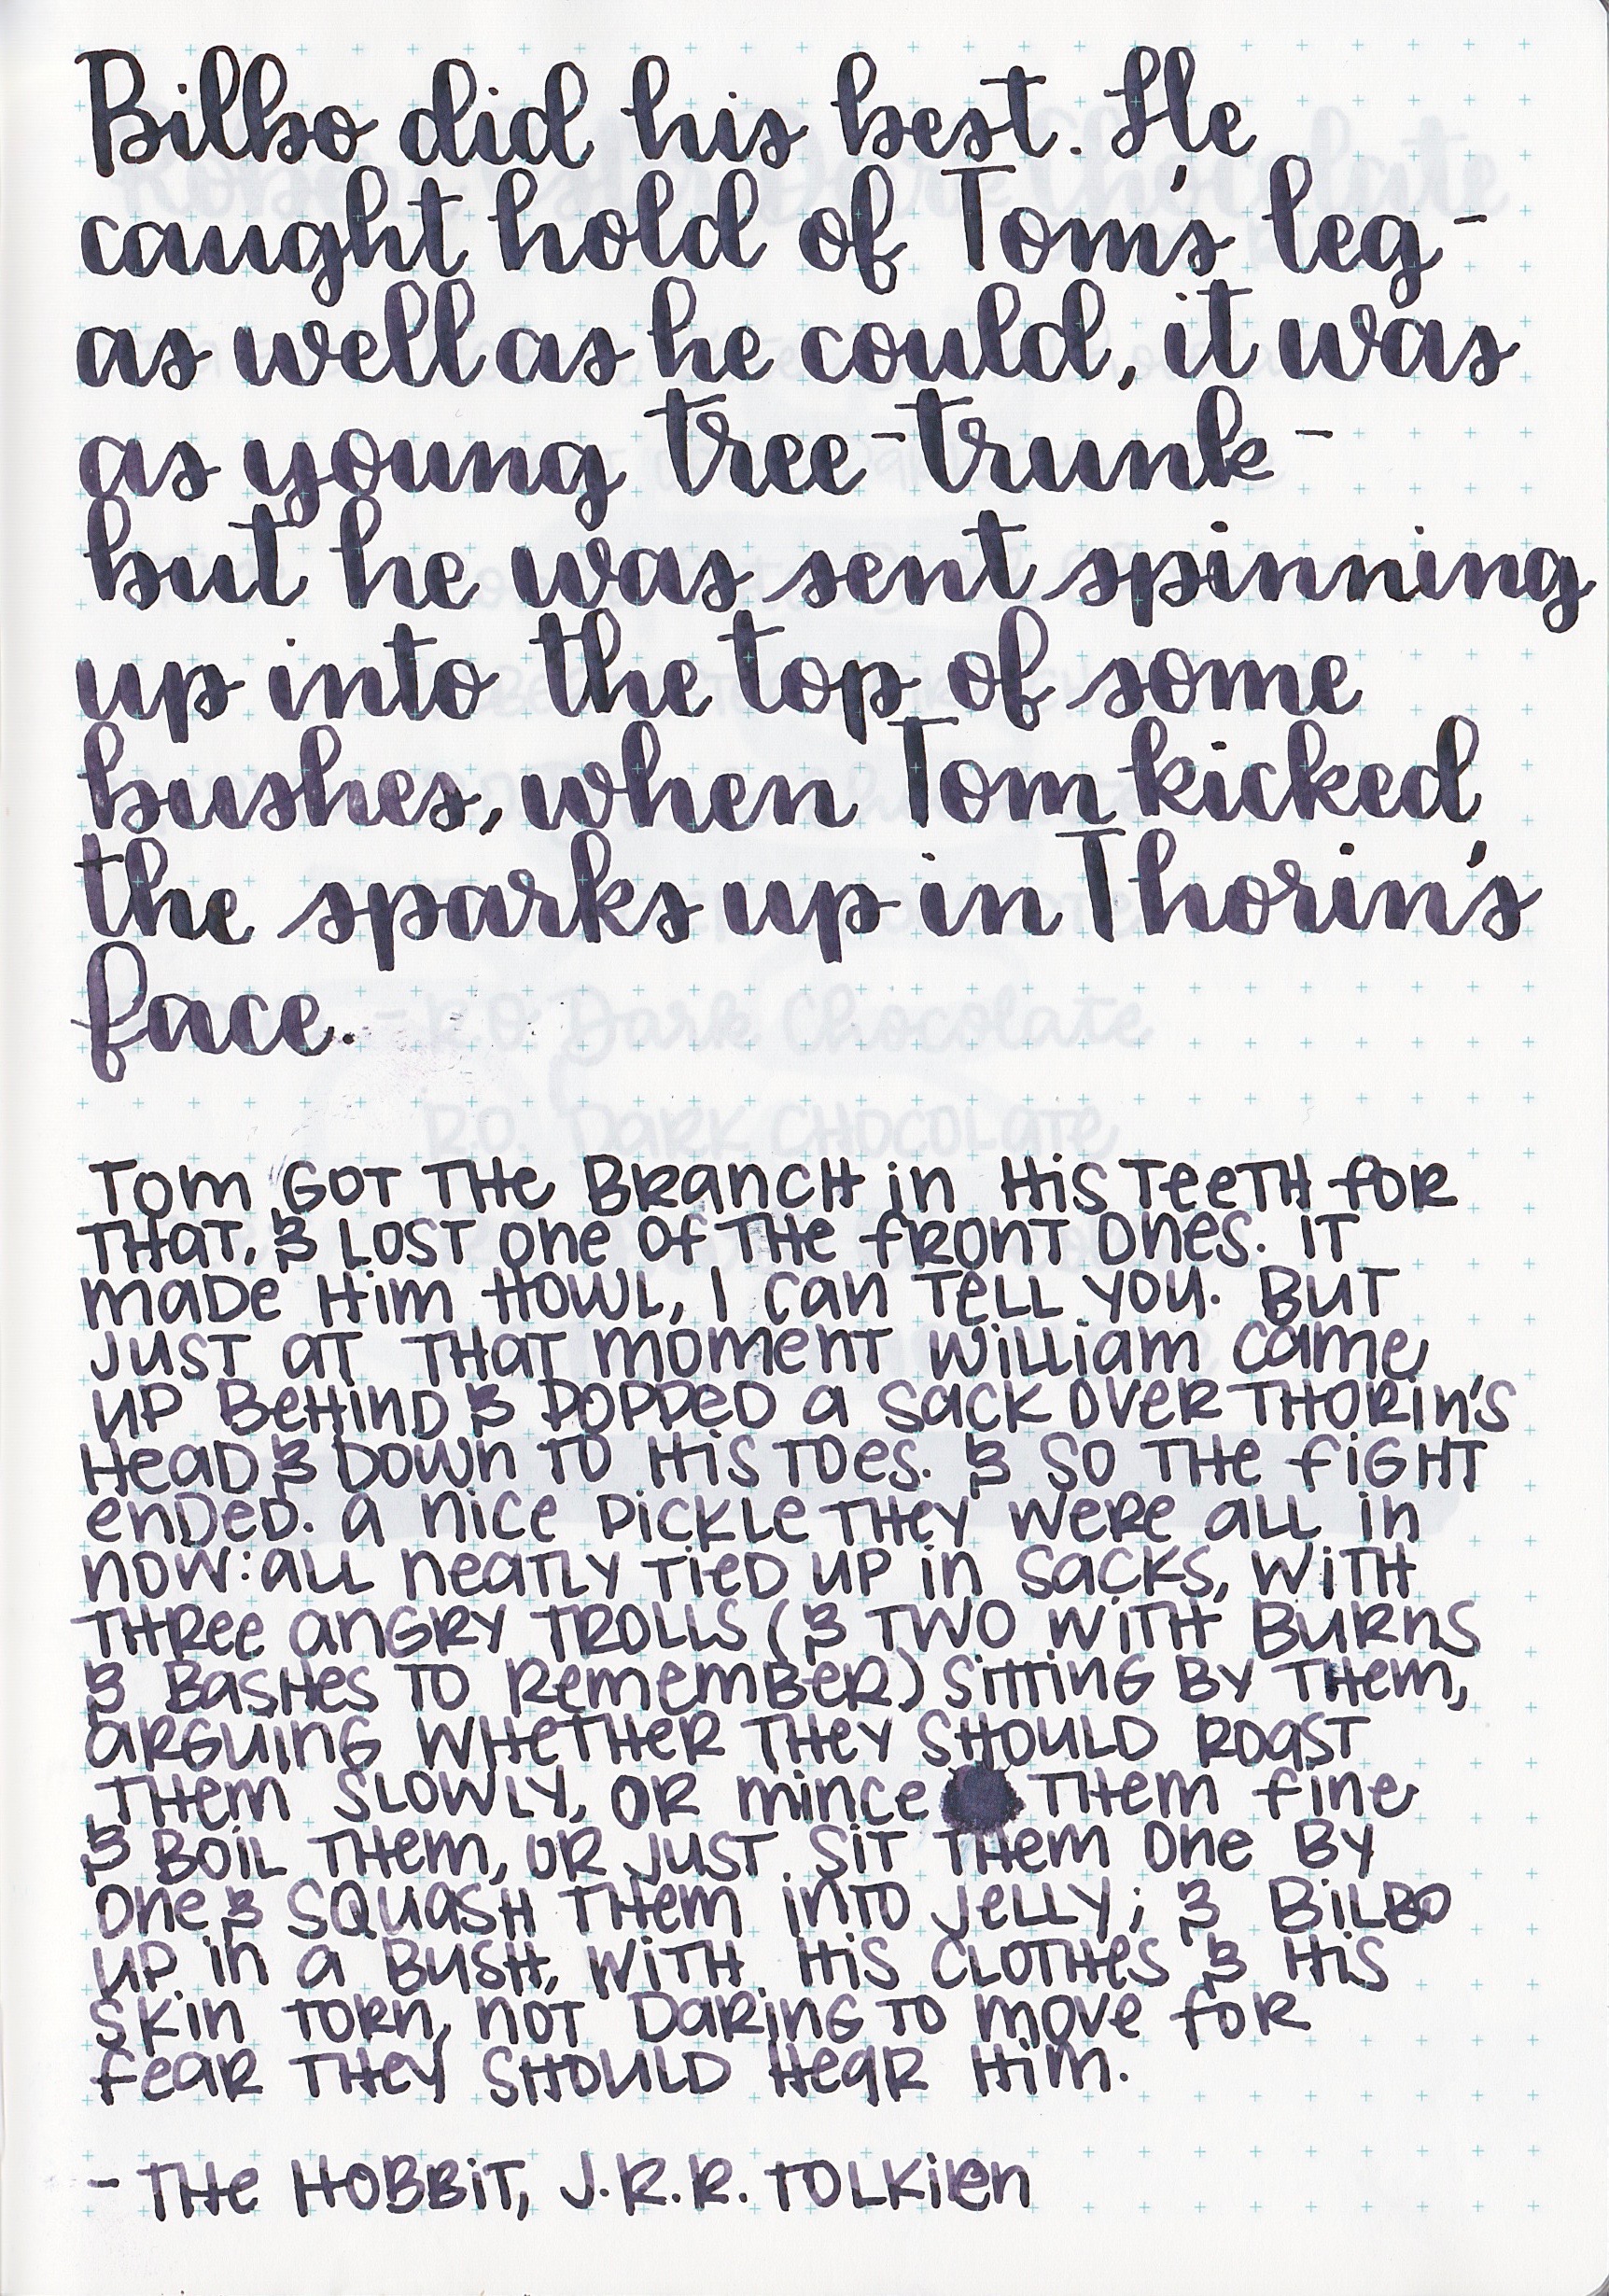 Bilbo did his best. He
caught hold of Tom's leg -
as well as he could, it was
as young tree-trunk -
but he was sent spinning
up into the top of some
bushes, when Tom kicked
the sparks up in Thorin's
face.
Tom got the branch in his teeth for
that, & lost one of the front ones. It
made him howl, I can tell you. But
just at that moment William came
up behind & popped a sack over Thorin's
head & down to his toes. & so the fight
ended. A nice pickle they were all in
now: all neatly tied up in sacks, with
three angry trolls (& two with burns
& bashes to remember) sitting by them,
arguing whether they should roast
them slowly, or mince them fine
& boil them, or just sit them one by
one & squash them into jelly; & Bilbo
up in a bush, with his clothes & his
skin torn, not daring to move for
fear they should hear him.
- The Hobbit, J.R.R. Tolkien
R.O. Dark Chocolate
R.O. DARK CHOCOLATE